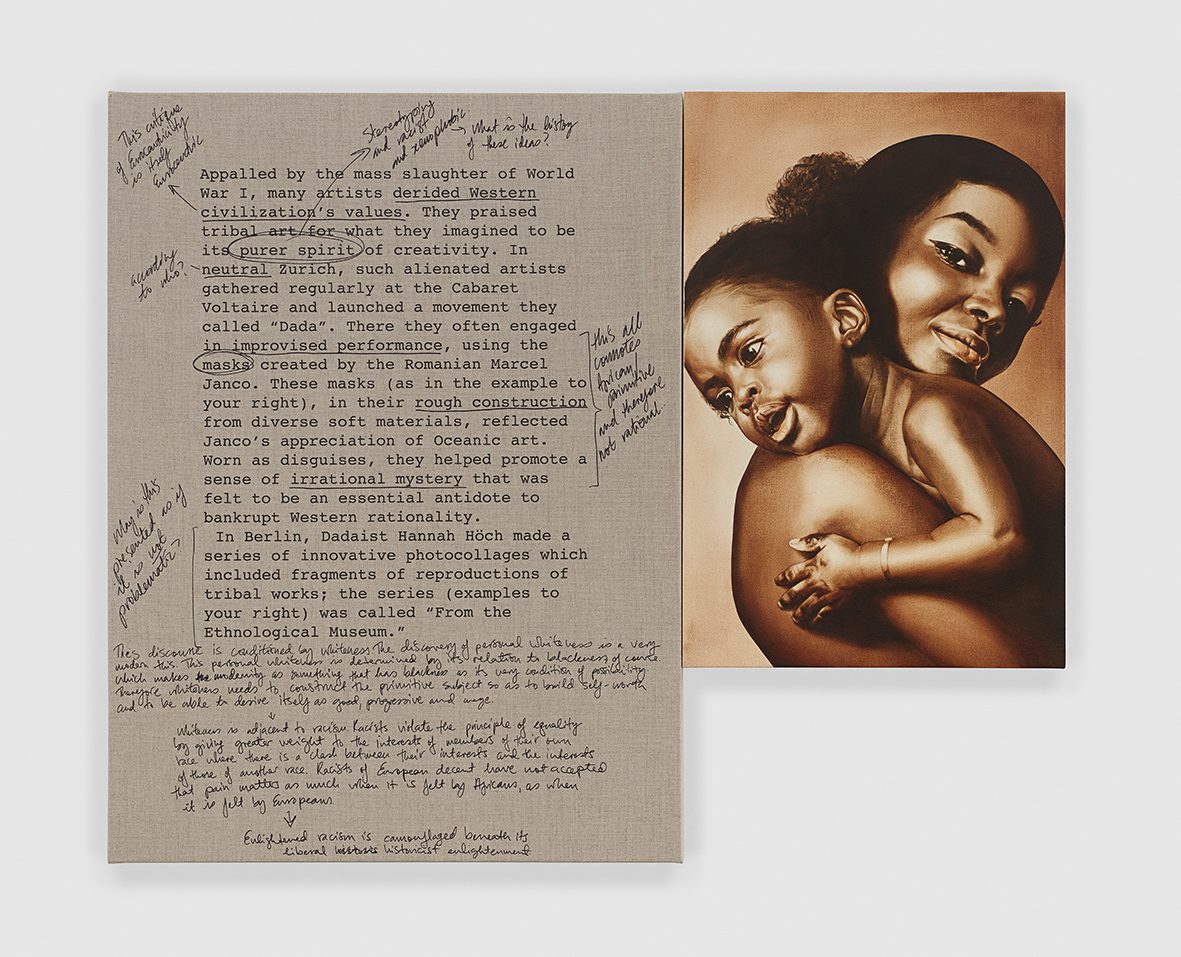 This critique
of Eurocentricity
is itself
Eurocentric
Stereotyping
and racist
and xenophobic
What is the history
of these ideas?
Appalled by the mass slaughter of World
War I, many artists derided Western
civilization's values. They praised
tribal art for what they imagined to be
its purer spirit of creativity. In
neutral Zurich, such alienated artists
gathered regularly at the Cabaret
Voltaire and launched a movement they
called “Dada”. There they often engaged
in improvised performance, using the
masks created by the Romanian Marcel
Janco. These masks (as in the example to
your right), in their rough construction
from diverse soft materials, reflected
Janco's appreciation of Oceanic art.
Worn as disguises, they helped promote a
sense of irrational mystery that was
felt to be an essential antidote to
bankrupt Western rationality.
In Berlin, Dadaist Hannah Höch made a
series of innovative photocollages which
included fragments of reproductions of
tribal works; the series (examples to
your right) was called “From the
Ethnological Museum.”
according
to who?
this all
connotes
African/
primitive
and therefore
not rational
Why is this
presented as if
it is not
problematic?
This discourse is conditioned by whiteness. The discovery of personal whiteness is a very
modern this. This personal whiteness is determined by its relation to blackness of course
which makes modernity as something that has blackness as its very condition of possibility.
Therefore whiteness needs to construct the primitive subject so as to build self-worth
and to be able to desire itself as good, progressive and
Whiteness is adjacent to racism. Racists violate the principle of equality
by giving greater weight to the interests of members of their own
race where there is a clash between their interests and the interests
of those of another race. Racists of European decent have not accepted
that pain matters as much when it is felt by Africans, as when
it is felt by Europeans
Enlightened racism is camouflaged beneath its
liberal historicist enlightenment